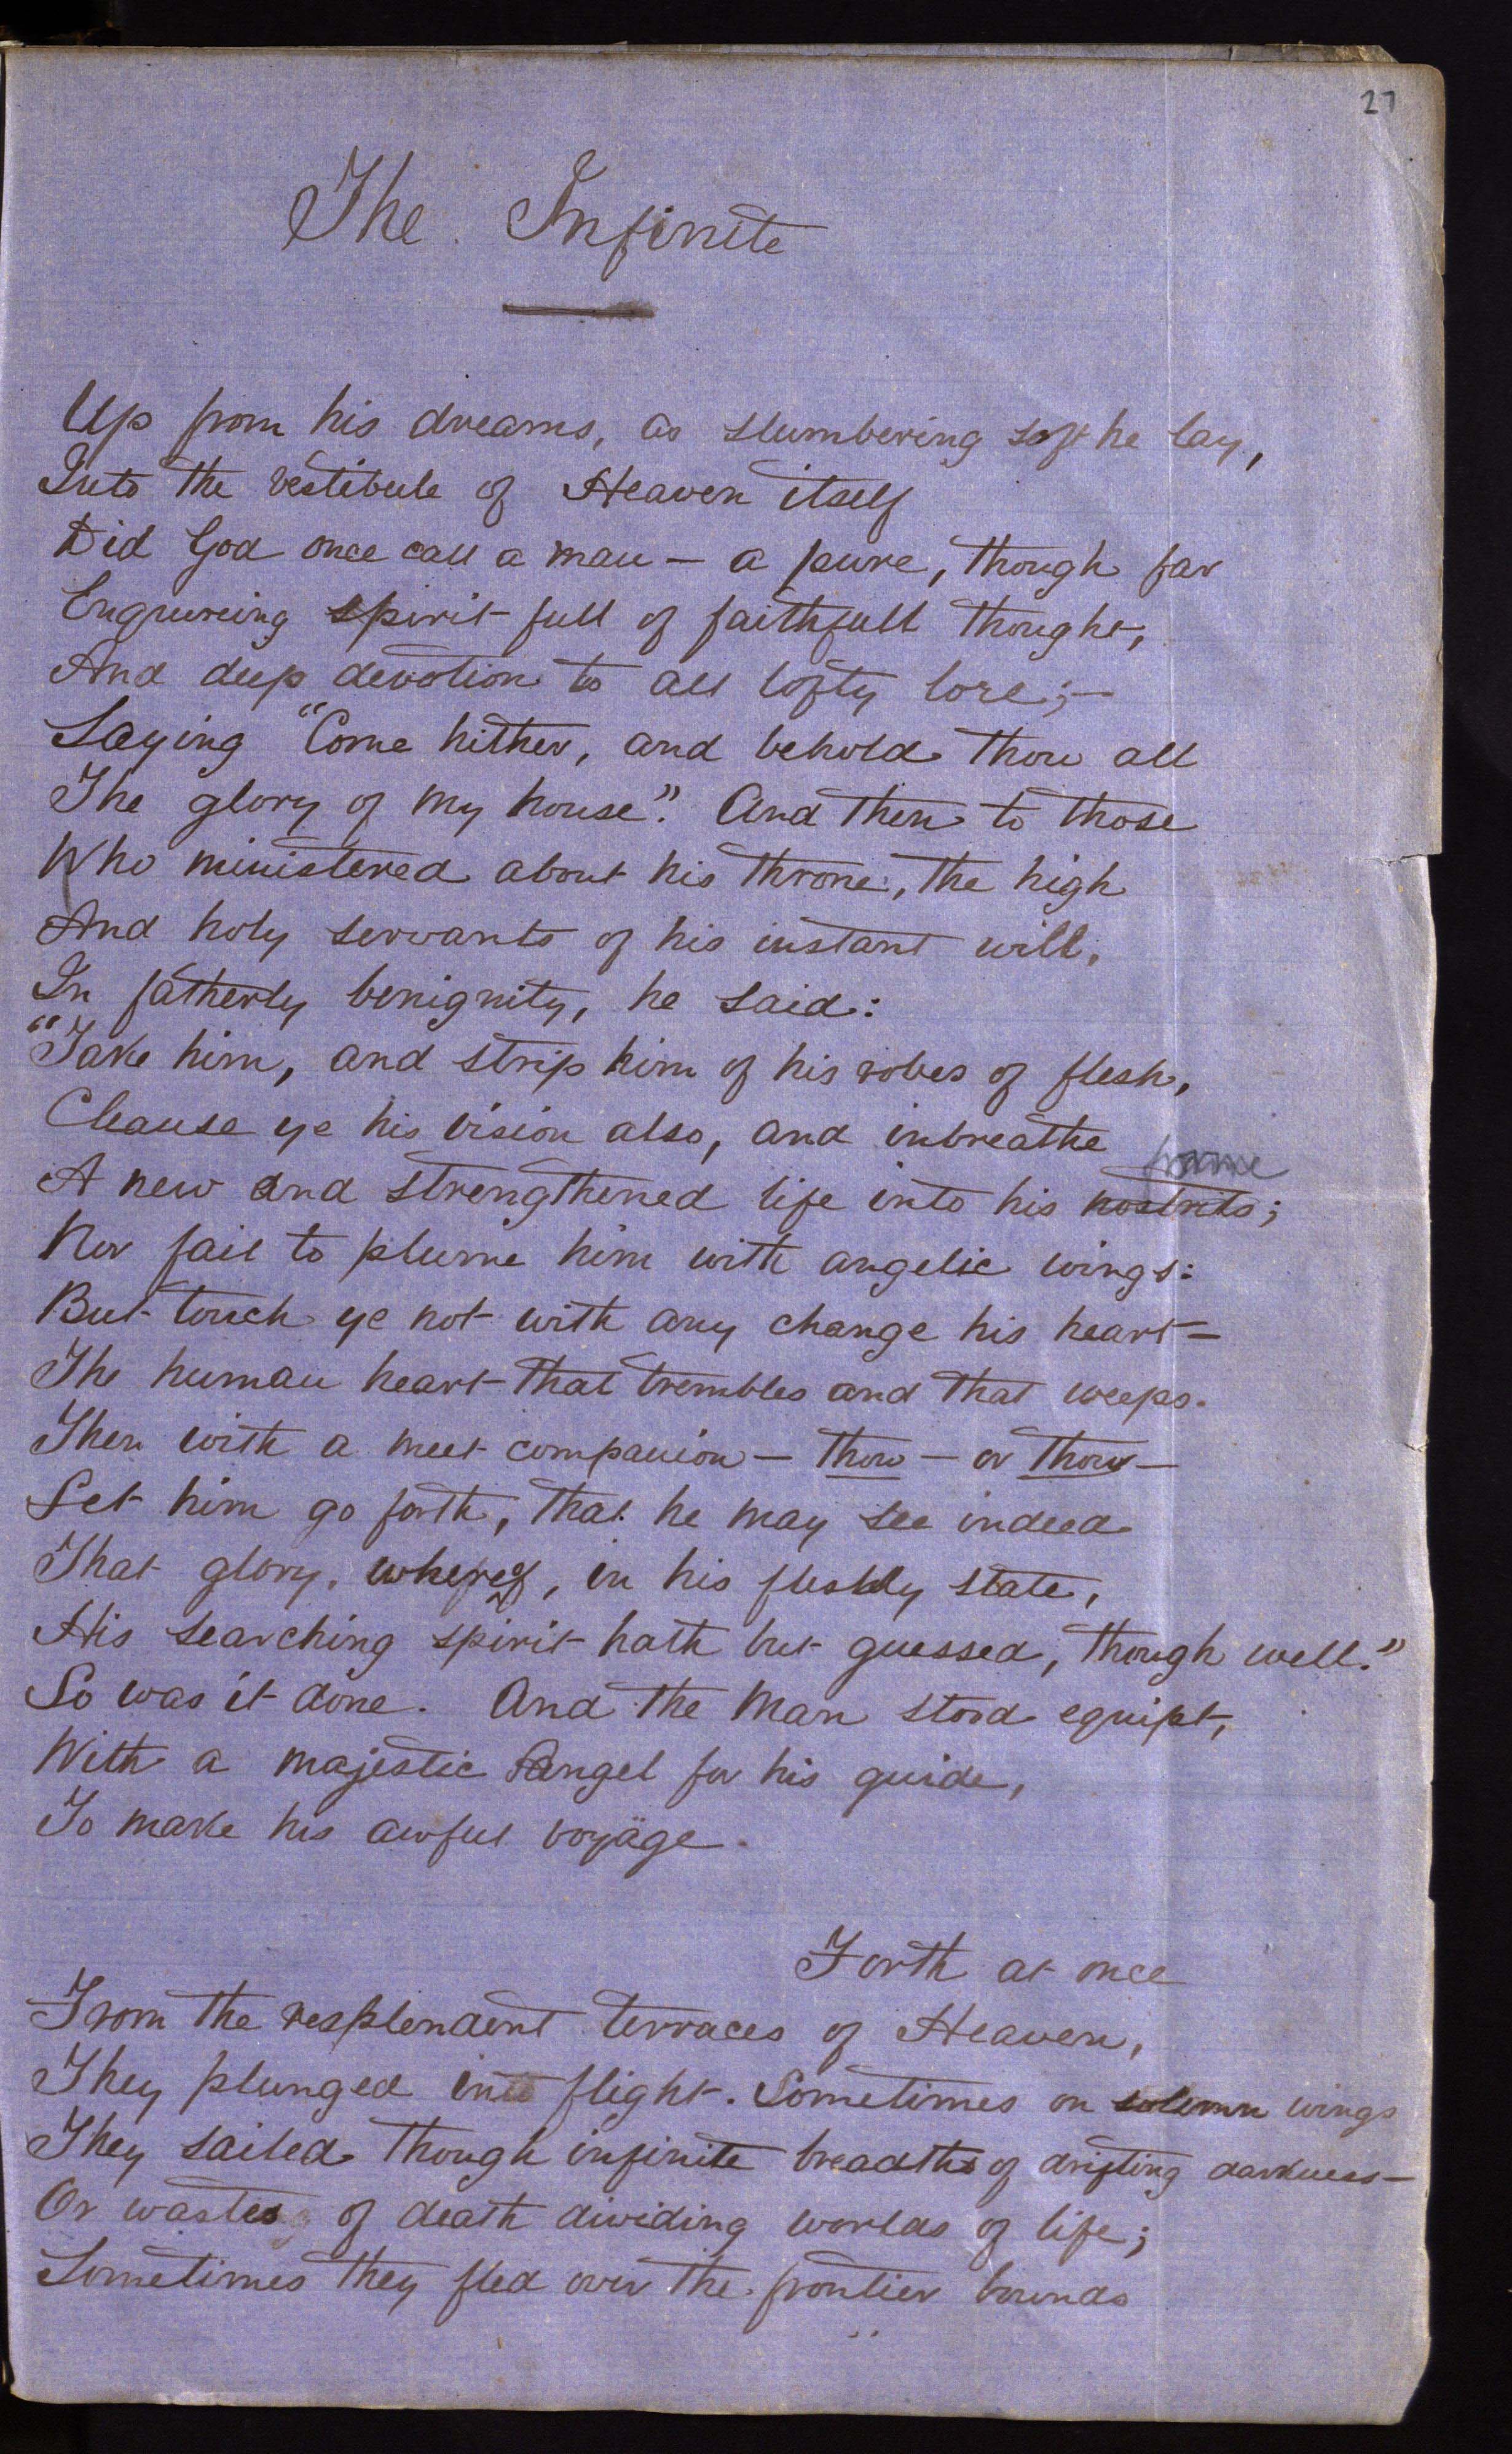 27
The Infinite
Up from his dreams, as slumbering soft he lay,
Into the vestibule of Heaven itself
Did God once call a man — a pure, though far
Enquireing spirit full of faithfull thought,
And deep devotion to all lofty lore; —
Saying "Come hither, and behold thou all
The glory of my house". And then to those
Who ministered about his throne, the high
And holy servants of his instant will,
In fatherly benignity, he said:
"Take him, and strip him of his robes of flesh,
Cleanse ye his vision also, and inbreathe
frame
A new and strengthened life into his nostrils;
Nor fail to plume him with angelic wings:
But touch ye not with any change his heart —
The human heart that trembles and that weeps.
Then with a meet companion — thou — or thou —
Let him go forth, that he may see indeed
That glory, whereof, in his fleshly state,
His searching spirit hath but guessed, though well."
So was it done. And the Man stood equipt,
With a majestic Angel for his guide,
To make his awful voyäge.
Forth at once
From the resplendent terraces of Heaven,
They plunged into flight. Sometimes on solemn wings
They sailed though infinite breadths of drifting darkness —
Or wastes of death dividing worlds of life;
Sometimes they fled over the frontier bounds